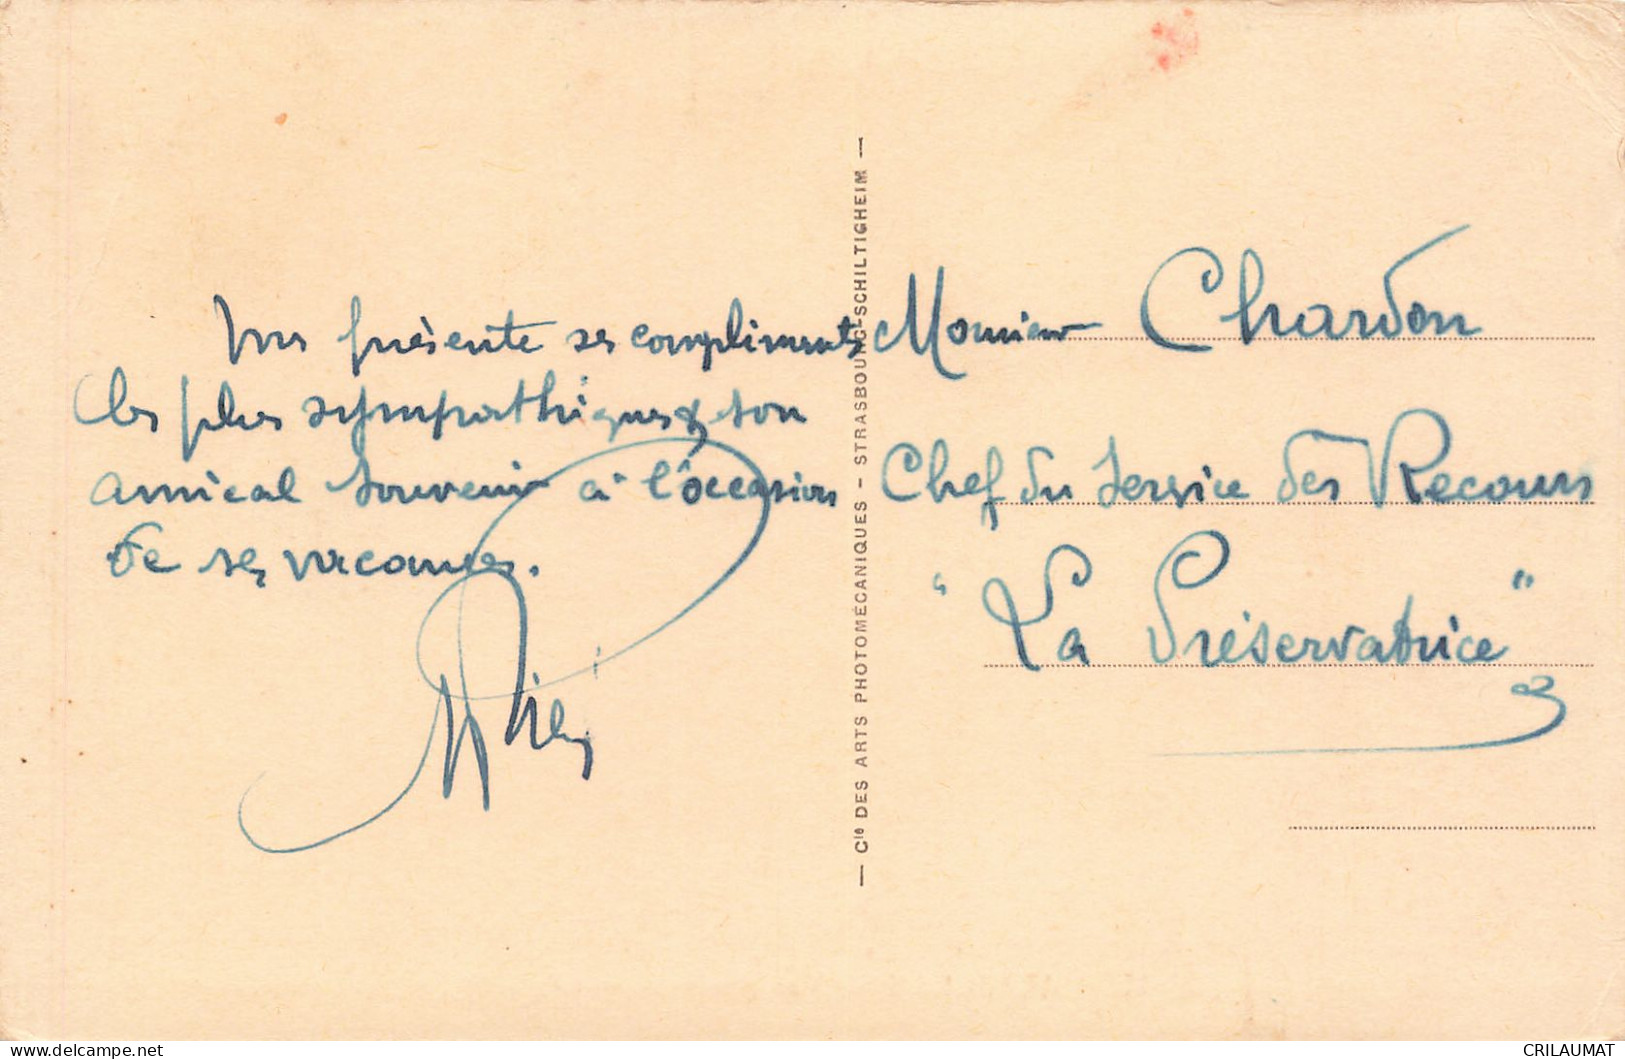 Vous présente ses compliments
les plus sympathiques & son
amical souvenir à l'occasion
de ses vacances.
— Cie DES ARTS PHOTOMÉCANIQUES - STRASBOURG-SCHILTIGHEIM —
Monsieur Chardon
Chef du Service des Recours
"La Préservatrice"
delcampe.net
CRILAUMAT